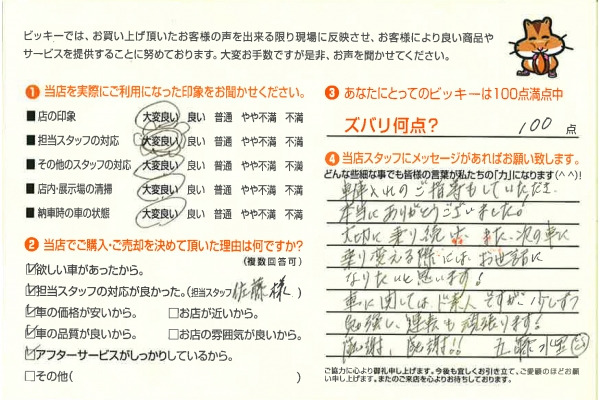 ビッキーでは、お買い上げ頂いたお客様の声を出来る限り現場に反映させ、お客様により良い商品や
サービスを提供することに努めております。大変お手数ですが是非、お声を聞かせてください。
❶ 当店を実際にご利用になった印象をお聞かせください。
■店の印象 大変良い 良い 普通 やや不満 不満
■担当スタッフの対応 大変良い 良い 普通 やや不満 不満
■その他のスタッフの対応 大変良い 良い 普通 やや不満 不満
■店内・展示場の清掃 大変良い 良い 普通 やや不満 不満
■納車時の車の状態 大変良い 良い 普通 やや不満 不満
❷ 当店でご購入・ご売却を決めて頂いた理由は何ですか?
(複数回答可)
☑欲しい車があったから。
☑担当スタッフの対応が良かった。(担当スタッフ 佐藤様 )
☑車の価格が安いから。 □お店が近いから。
☑車の品質が良いから。 □お店の雰囲気が良いから。
☑アフターサービスがしっかりしているから。
□その他( )
❸ あなたにとってのビッキーは100点満点中
ズバリ何点? 100 点
❹ 当店スタッフにメッセージがあればお願い致します。
どんな些細な事でも皆様の言葉が私たちの「力」になります(^^)!
車庫入れのご指導もしていただき
本当にありがとうございました。
大切に乗り続け、また、次の車に
乗り変える際には、お世話に
なりたいと思います!
車に関してはド素人ですが、少しずつ
勉強し、運転も頑張ります!
感謝、感謝!!
ご協力に心より御礼申し上げます。今後も宜しくお引き立て、ご愛顧のほどお願
い申し上げます。またのご来店を心よりお待ちしております。